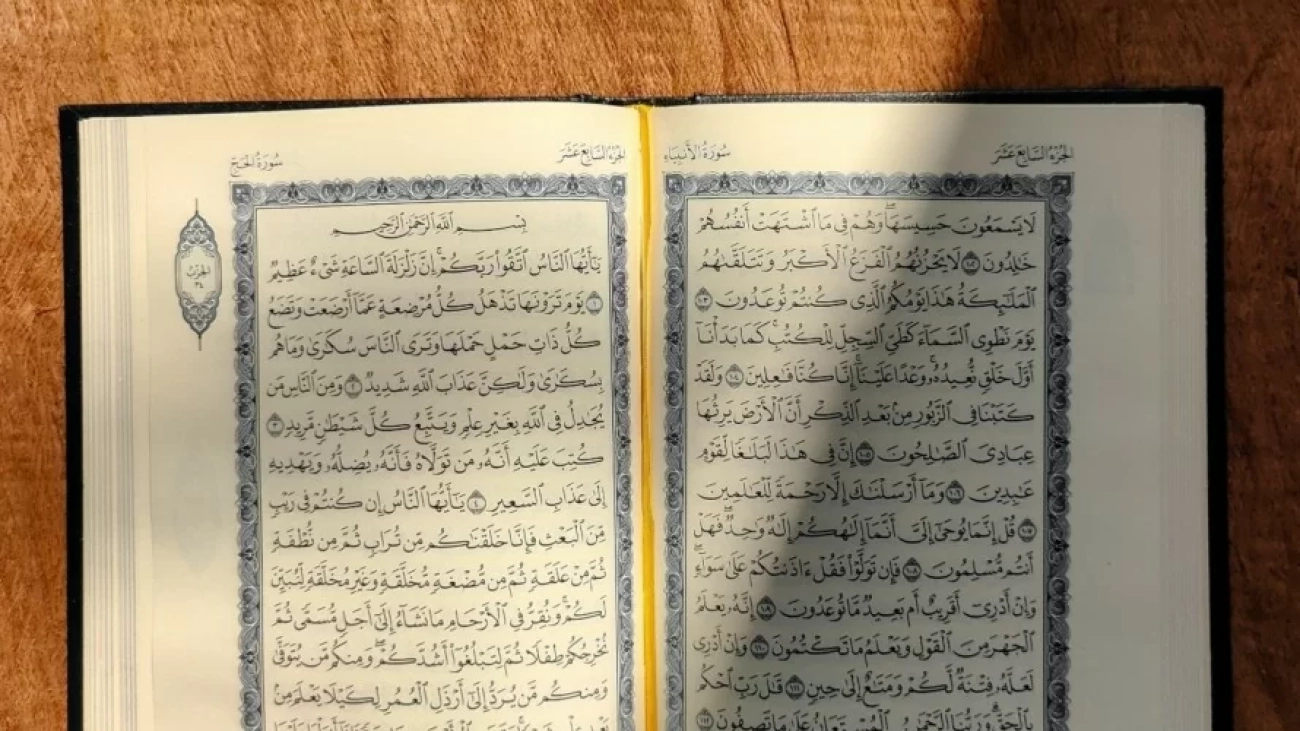 الجزء السابع عشر
سورة الأنبياء
لَا يَسْمَعُونَ حَسِيسَهَا ۖ وَهُمْ فِي مَا ٱشْتَهَتْ أَنفُسُهُمْ
خَٰلِدُونَ ١٠٢ لَا يَحْزُنُهُمُ ٱلْفَزَعُ ٱلْأَكْبَرُ وَتَتَلَقَّىٰهُمُ
ٱلْمَلَٰٓئِكَةُ هَٰذَا يَوْمُكُمُ ٱلَّذِي كُنتُمْ تُوعَدُونَ ١٠٣
يَوْمَ نَطْوِي ٱلسَّمَآءَ كَطَيِّ ٱلسِّجِلِّ لِلْكُتُبِ ۚ كَمَا بَدَأْنَآ
أَوَّلَ خَلْقٍ نُّعِيدُهُۥ ۚ وَعْدًا عَلَيْنَآ ۚ إِنَّا كُنَّا فَٰعِلِينَ ١٠٤ وَلَقَدْ
كَتَبْنَا فِي ٱلزَّبُورِ مِنۢ بَعْدِ ٱلذِّكْرِ أَنَّ ٱلْأَرْضَ يَرِثُهَا
عِبَادِيَ ٱلصَّٰلِحُونَ ١٠٥ إِنَّ فِي هَٰذَا لَبَلَٰغًا لِّقَوْمٍ
عَٰبِدِينَ ١٠٦ وَمَآ أَرْسَلْنَٰكَ إِلَّا رَحْمَةً لِّلْعَٰلَمِينَ
١٠٧ قُلْ إِنَّمَا يُوحَىٰٓ إِلَيَّ أَنَّمَآ إِلَٰهُكُمْ إِلَٰهٌ وَٰحِدٌ ۖ فَهَلْ
أَنتُم مُّسْلِمُونَ ١٠٨ فَإِن تَوَلَّوْا۟ فَقُلْ ءَاذَنتُكُمْ عَلَىٰ سَوَآءٍ ۖ
وَإِنْ أَدْرِيٓ أَقَرِيبٌ أَم بَعِيدٌ مَّا تُوعَدُونَ ١٠٩ إِنَّهُۥ يَعْلَمُ
ٱلْجَهْرَ مِنَ ٱلْقَوْلِ وَيَعْلَمُ مَا تَكْتُمُونَ ١١٠ وَإِنْ أَدْرِي
لَعَلَّهُۥ فِتْنَةٌ لَّكُمْ وَمَتَٰعٌ إِلَىٰ حِينٍ ١١١ قَٰلَ رَبِّ ٱحْكُم
بِٱلْحَقِّ ۗ وَرَبُّنَا ٱلرَّحْمَٰنُ ٱلْمُسْتَعَانُ عَلَىٰ مَا تَصِفُونَ ١١٢
الجزء السابع عشر
سورة الحج
بِسْمِ ٱللَّهِ ٱلرَّحْمَٰنِ ٱلرَّحِيمِ
يَٰٓأَيُّهَا ٱلنَّاسُ ٱتَّقُوا۟ رَبَّكُمْ ۚ إِنَّ زَلْزَلَةَ ٱلسَّاعَةِ شَيْءٌ عَظِيمٌ
١ يَوْمَ تَرَوْنَهَا تَذْهَلُ كُلُّ مُرْضِعَةٍ عَمَّآ أَرْضَعَتْ وَتَضَعُ
كُلُّ ذَاتِ حَمْلٍ حَمْلَهَا وَتَرَى ٱلنَّاسَ سُكَٰرَىٰ وَمَا هُم
بِسُكَٰرَىٰ وَلَٰكِنَّ عَذَابَ ٱللَّهِ شَدِيدٌ ٢ وَمِنَ ٱلنَّاسِ مَن
يُجَٰدِلُ فِي ٱللَّهِ بِغَيْرِ عِلْمٍ وَيَتَّبِعُ كُلَّ شَيْطَٰنٍ مَّرِيدٍ ٣
كُتِبَ عَلَيْهِ أَنَّهُۥ مَن تَوَلَّاهُ فَأَنَّهُۥ يُضِلُّهُۥ وَيَهْدِيهِ
إِلَىٰ عَذَابِ ٱلسَّعِيرِ ٤ يَٰٓأَيُّهَا ٱلنَّاسُ إِن كُنتُمْ فِي رَيْبٍ
مِّنَ ٱلْبَعْثِ فَإِنَّا خَلَقْنَٰكُم مِّن تُرَابٍ ثُمَّ مِن نُّطْفَةٍ
ثُمَّ مِنْ عَلَقَةٍ ثُمَّ مِن مُّضْغَةٍ مُّخَلَّقَةٍ وَغَيْرِ مُخَلَّقَةٍ لِّنُبَيِّنَ
لَكُمْ ۚ وَنُقِرُّ فِي ٱلْأَرْحَامِ مَا نَشَآءُ إِلَىٰٓ أَجَلٍ مُّسَمًّى ثُمَّ
نُخْرِجُكُمْ طِفْلًا ثُمَّ لِتَبْلُغُوٓا۟ أَشُدَّكُمْ ۖ وَمِنكُم مَّن يُتَوَفَّىٰ
وَمِنكُم مَّن يُرَدُّ إِلَىٰٓ أَرْذَلِ ٱلْعُمُرِ لِكَيْلَا يَعْلَمَ مِنۢ
الحزب
٣٤